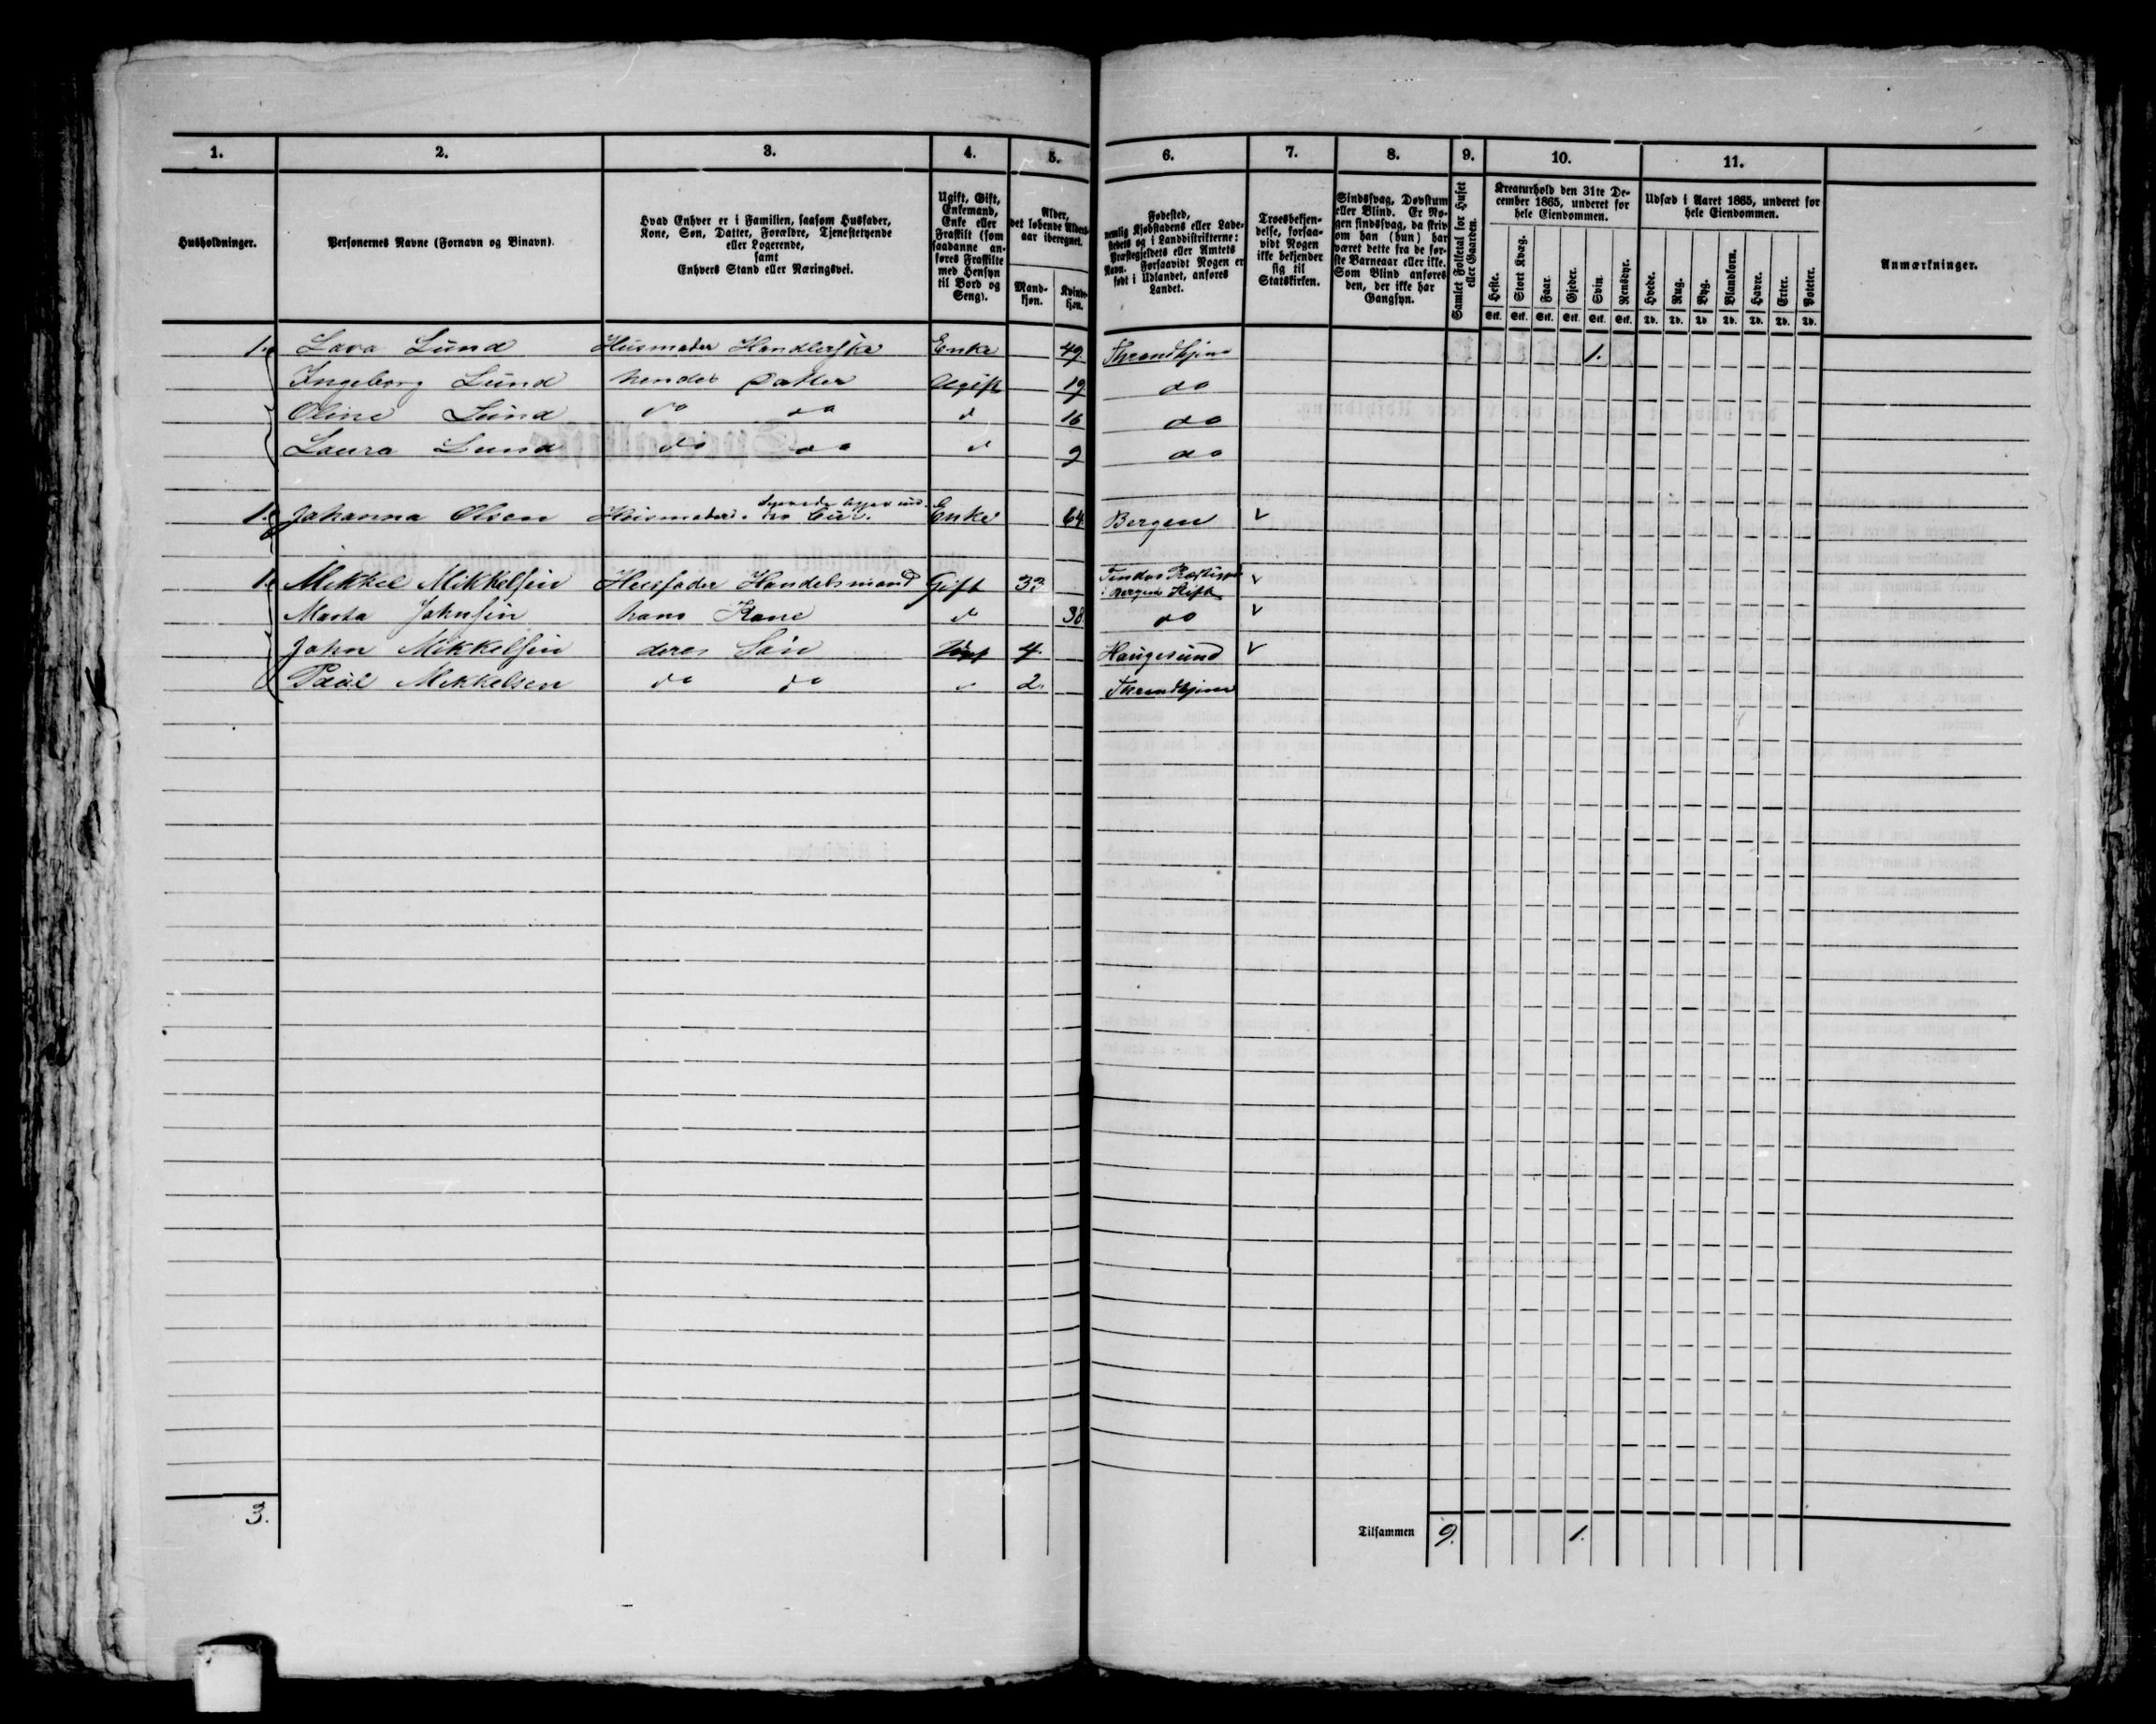 1. 2. 3. 4. 5. 6. 7. 8. 9. 10. 11.
Husholdninger.
Personernes Navne (Fornavn og Binavn).
Hvad Enhver er i Familien, saasom Husfader,
Kone, Søn, Datter, Forældre, Tjenestetyende
eller Logerende,
samt
Enhvers Stand eller Næringsvei.
Ugift, Gift,
Enkemand,
Enke eller
Fraskilt (som
saadanne an-
føres Fraskilte
med Hensyn
til Bord og
Seng).
Alder,
det løbende Alders-
aar iberegnet.
Mand-
kjøn.
Kvinde-
kjøn.
Fødested,
nemlig Kjøbstadens eller Lade-
stedets og i Landdistrikterne:
Præstegjeldets eller Amtets
Navn. Forsaavidt Nogen er
født i Udlandet, anføres
Landet.
Troesbekjen-
delse, forsaa-
vidt Nogen
ikke bekjender
sig til
Statskirken.
Sindssvag, Døvstum
eller Blind. Er No-
gen sindssvag, da skriv
om han (hun) har
været dette fra de før-
ste Barneaar eller ikke.
Som Blind anføres
den, der ikke har
Gangsyn.
Samlet Folketal for Huset
eller Gaarden.
Kreaturhold den 31te De-
cember 1865, underet for
hele Eiendommen.
Heste. Stort Kvæg. Faar. Gjeder. Svin. Rensdyr.
Stk. Stk. Stk. Stk. Stk. Stk.
Udsæd i Aaret 1865, underet for
hele Eiendommen.
Hvede. Rug. Byg. Blandkorn. Havre. Erter. Poteter.
Td. Td. Td. Td. Td. Td. Td.
Anmærkninger.
1. Lava Lund Husmoder Handlerske Enke 49 Throndhjem 1.
Ingeborg Lund hendes Datter Ugift 19 do
Oline Lund do do d 16 do
Laura Lund do do d 9 do
1. Johanna Olsen Husmoder Enke 64 Bergen v
1. Mikkel Mikkelsen Husfader Handelsmand Gift 33 i Bergens Stift v
Marta Johnsen hans Kone d 38 do v
John Mikkelsen deres Søn 4 Haugesund v
Paul Mikkelsen do do 2. Throndhjem
3.
Tilsammen 9. 1.